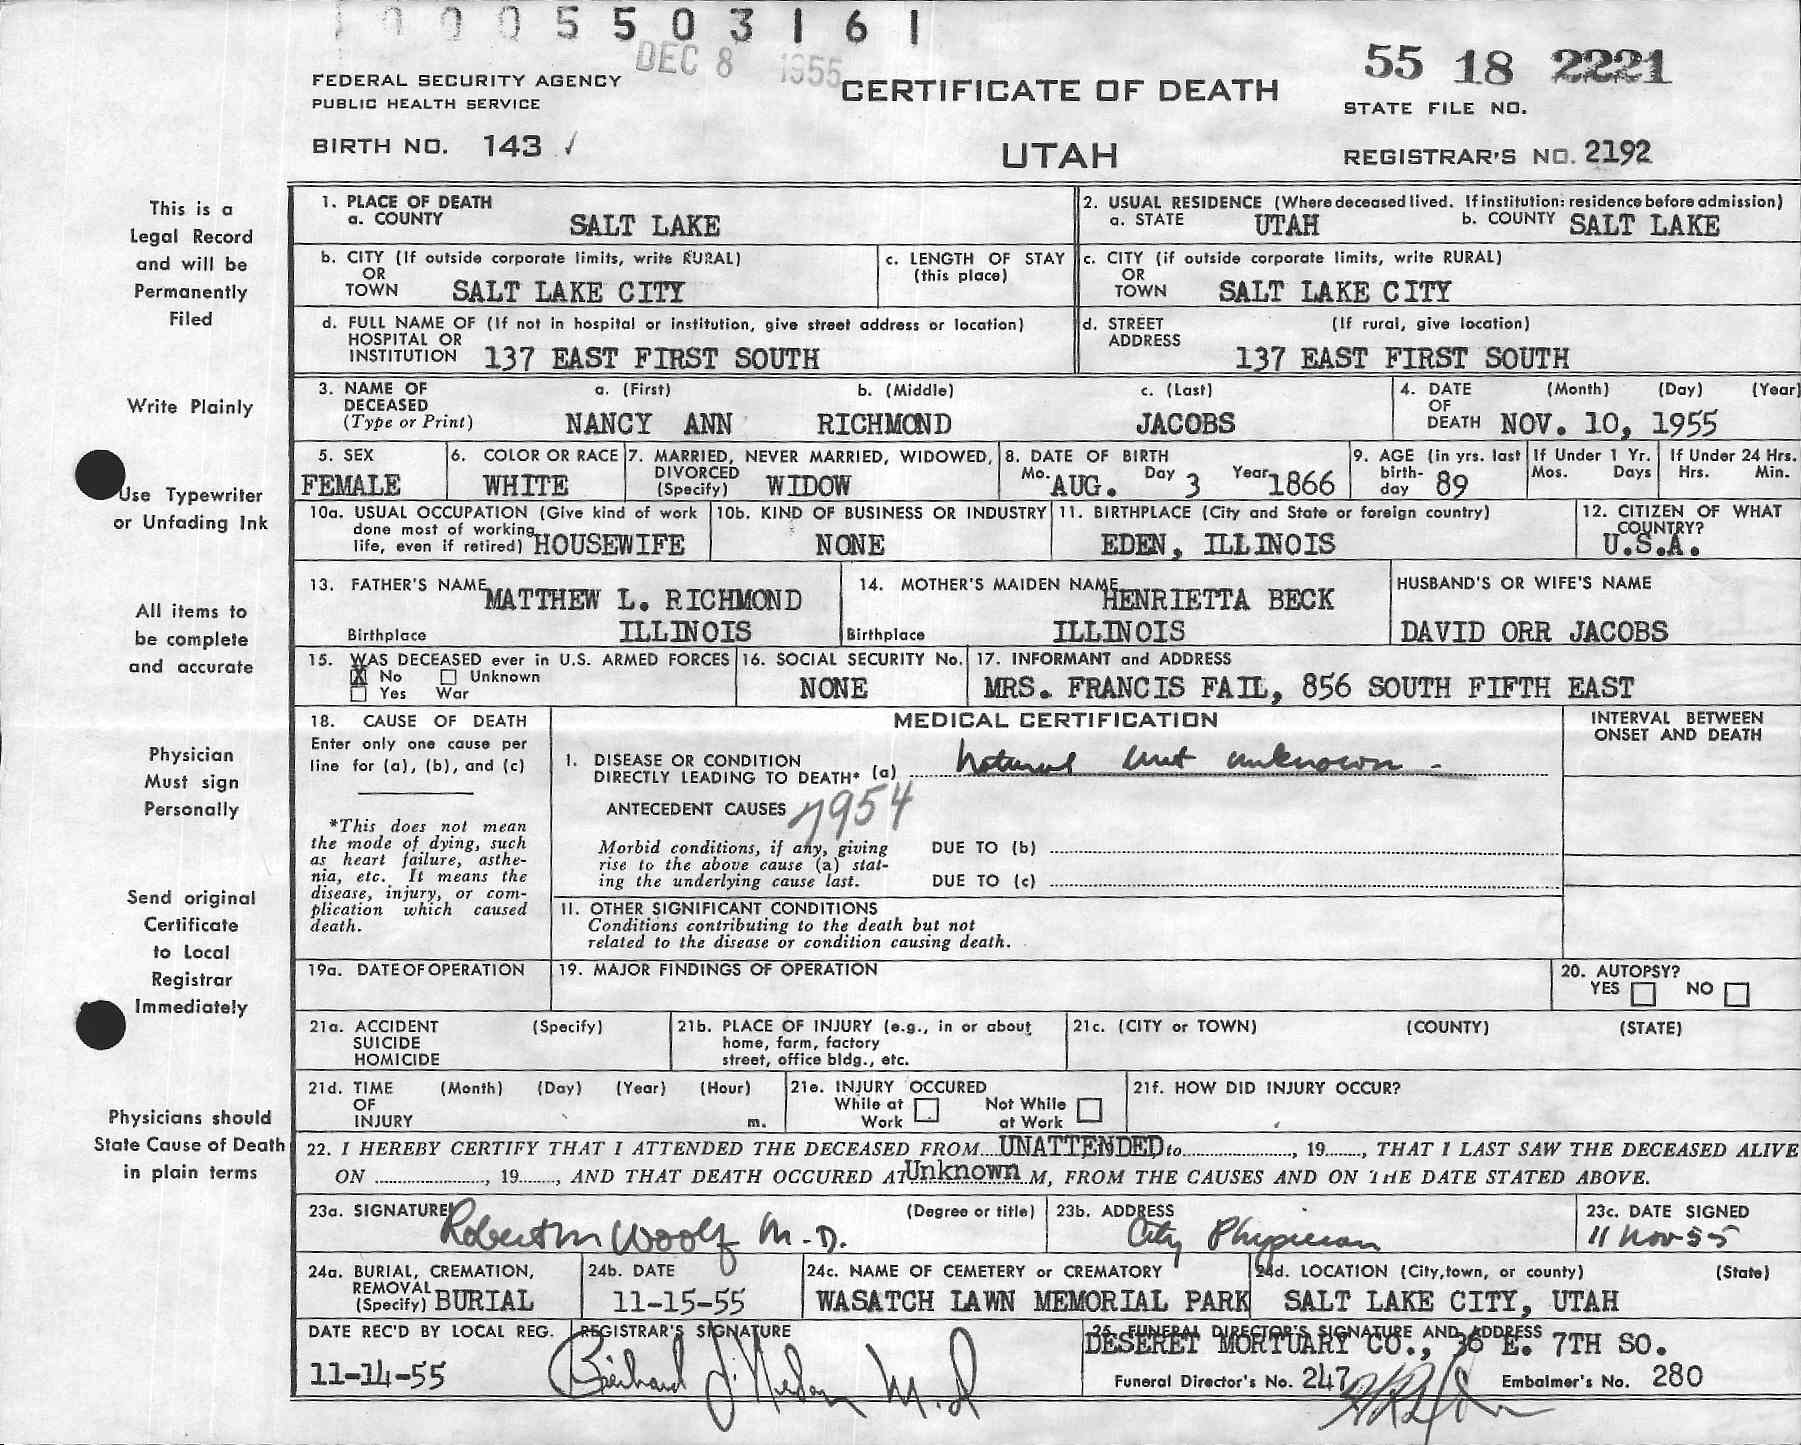 1 0 0 0 5 5 0 3 1 6 1
DEC 8 1955
55 18 2221
FEDERAL SECURITY AGENCY
PUBLIC HEALTH SERVICE
CERTIFICATE OF DEATH
STATE FILE NO.
BIRTH NO. 143 ✓
UTAH
REGISTRAR'S NO. 2192
This is a
Legal Record
and will be
Permanently
Filed
Write Plainly
Use Typewriter
or Unfading Ink
All items to
be complete
and accurate
Physician
Must sign
Personally
Send original
Certificate
to Local
Registrar
Immediately
Physicians should
State Cause of Death
in plain terms
1. PLACE OF DEATH
a. COUNTY SALT LAKE
2. USUAL RESIDENCE (Where deceased lived. If institution: residence before admission)
a. STATE UTAH b. COUNTY SALT LAKE
b. CITY (If outside corporate limits, write RURAL)
OR
TOWN SALT LAKE CITY
c. LENGTH OF STAY
(this place)
c. CITY (if outside corporate limits, write RURAL)
OR
TOWN SALT LAKE CITY
d. FULL NAME OF (If not in hospital or institution, give street address or location)
HOSPITAL OR
INSTITUTION 137 EAST FIRST SOUTH
d. STREET (If rural, give location)
ADDRESS
137 EAST FIRST SOUTH
3. NAME OF a. (First) b. (Middle) c. (Last)
DECEASED
(Type or Print) NANCY ANN RICHMOND JACOBS
4. DATE (Month) (Day) (Year)
OF
DEATH NOV. 10, 1955
5. SEX
FEMALE
6. COLOR OR RACE
WHITE
7. MARRIED, NEVER MARRIED, WIDOWED,
DIVORCED
(Specify) WIDOW
8. DATE OF BIRTH
Mo. AUG. Day 3 Year 1866
9. AGE (in yrs. last
birth-
day 89
If Under 1 Yr.
Mos. Days
If Under 24 Hrs.
Hrs. Min.
10a. USUAL OCCUPATION (Give kind of work
done most of working
life, even if retired) HOUSEWIFE
10b. KIND OF BUSINESS OR INDUSTRY
NONE
11. BIRTHPLACE (City and State or foreign country)
EDEN, ILLINOIS
12. CITIZEN OF WHAT
COUNTRY?
U.S.A.
13. FATHER'S NAME MATTHEW L. RICHMOND
Birthplace ILLINOIS
14. MOTHER'S MAIDEN NAME HENRIETTA BECK
Birthplace ILLINOIS
HUSBAND'S OR WIFE'S NAME
DAVID ORR JACOBS
15. WAS DECEASED ever in U.S. ARMED FORCES
X No Unknown
Yes War
16. SOCIAL SECURITY No.
NONE
17. INFORMANT and ADDRESS
MRS. FRANCIS FAIL, 856 SOUTH FIFTH EAST
18. CAUSE OF DEATH
Enter only one cause per
line for (a), (b), and (c)
*This does not mean
the mode of dying, such
as heart failure, asthe-
nia, etc. It means the
disease, injury, or com-
plication which caused
death.
MEDICAL CERTIFICATION
INTERVAL BETWEEN
ONSET AND DEATH
1. DISEASE OR CONDITION
DIRECTLY LEADING TO DEATH* (a) Natural but unknown -
ANTECEDENT CAUSES 7954
Morbid conditions, if any, giving
rise to the above cause (a) stat-
ing the underlying cause last.
DUE TO (b)
DUE TO (c)
11. OTHER SIGNIFICANT CONDITIONS
Conditions contributing to the death but not
related to the disease or condition causing death.
19a. DATE OF OPERATION
19. MAJOR FINDINGS OF OPERATION
20. AUTOPSY?
YES NO
21a. ACCIDENT (Specify)
SUICIDE
HOMICIDE
21b. PLACE OF INJURY (e.g., in or about
home, farm, factory
street, office bldg., etc.
21c. (CITY or TOWN) (COUNTY) (STATE)
21d. TIME (Month) (Day) (Year) (Hour)
OF
INJURY m.
21e. INJURY OCCURED
While at Not While
Work at Work
21f. HOW DID INJURY OCCUR?
22. I HEREBY CERTIFY THAT I ATTENDED THE DECEASED FROM UNATTENDED to , 19 , THAT I LAST SAW THE DECEASED ALIVE
ON , 19 , AND THAT DEATH OCCURED AT Unknown M, FROM THE CAUSES AND ON THE DATE STATED ABOVE.
23a. SIGNATURE (Degree or title)
Robert M Woolf M.D.
23b. ADDRESS
City Physician
23c. DATE SIGNED
11 Nov 55
24a. BURIAL, CREMATION,
REMOVAL
(Specify) BURIAL
24b. DATE
11-15-55
24c. NAME OF CEMETERY or CREMATORY
WASATCH LAWN MEMORIAL PARK
24d. LOCATION (City, town, or county) (State)
SALT LAKE CITY, UTAH
DATE REC'D BY LOCAL REG.
11-14-55
REGISTRAR'S SIGNATURE
M.D
25. FUNERAL DIRECTOR'S SIGNATURE AND ADDRESS
DESERET MORTUARY CO., 36 E. 7TH SO.
Funeral Director's No. 247 Embalmer's No. 280